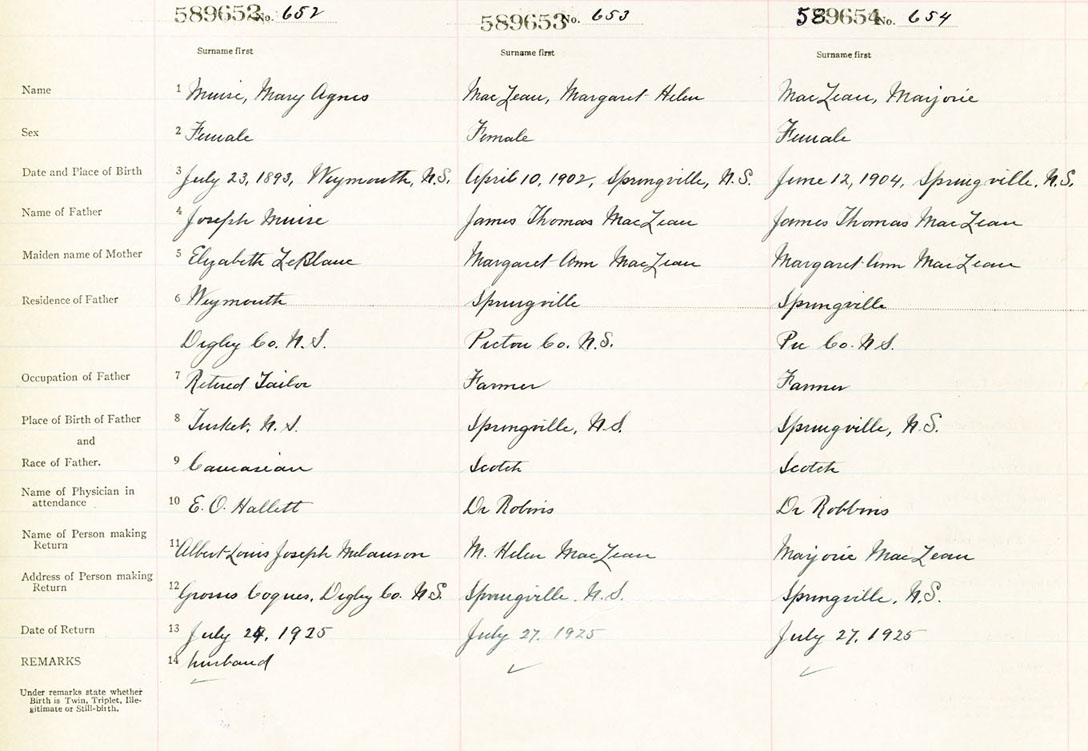 589652 No. 652 589653 No. 653 589654 No. 654
Surname first Surname first Surname first
Name 1 Muise, Mary Agnes MacLean, Margaret Helen MacLean, Marjorie
Sex 2 Female Female Female
Date and Place of Birth 3 July 23, 1893, Weymouth, N.S. April 10, 1902, Springville, N.S. June 12, 1904, Springville, N.S.
Name of Father 4 Joseph Muise James Thomas MacLean James Thomas MacLean
Maiden name of Mother 5 Elizabeth LeBlanc Margaret Ann MacLean Margaret Ann MacLean
Residence of Father 6 Weymouth Springville Springville
Digby Co. N.S. Pictou Co. N.S. Pic Co. N.S.
Occupation of Father 7 Retired Tailor Farmer Farmer
Place of Birth of Father 8 Tusket, N.S. Springville, N.S. Springville, N.S.
and
Race of Father. 9 Caucasian Scotch Scotch
Name of Physician in
attendance 10 E. O. Hallett Dr Robins Dr Robbins
Name of Person making
Return 11 Albert Louis Joseph Melanson M. Helen MacLean Marjorie MacLean
Address of Person making
Return 12 Grosses Coques, Digby Co. N.S. Springville. N.S. Springville, N.S.
Date of Return 13 July 24, 1925 July 27, 1925 July 27, 1925
REMARKS 14 husband
Under remarks state whether
Birth is Twin, Triplet, Ille-
gitimate or Still-birth.